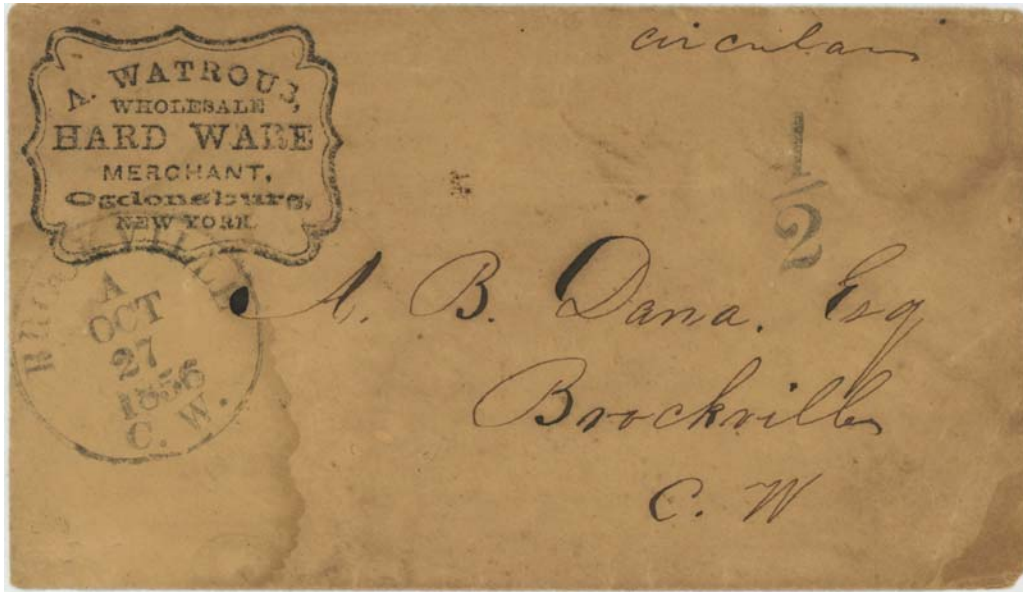 circular
A. WATROUS,
WHOLESALE
HARD WARE
MERCHANT,
Ogdensburg,
NEW YORK.
1/2
BROCKVILLE
A
OCT
27
1856
C. W.
A. B. Dana. Esq
Brockville
C. W